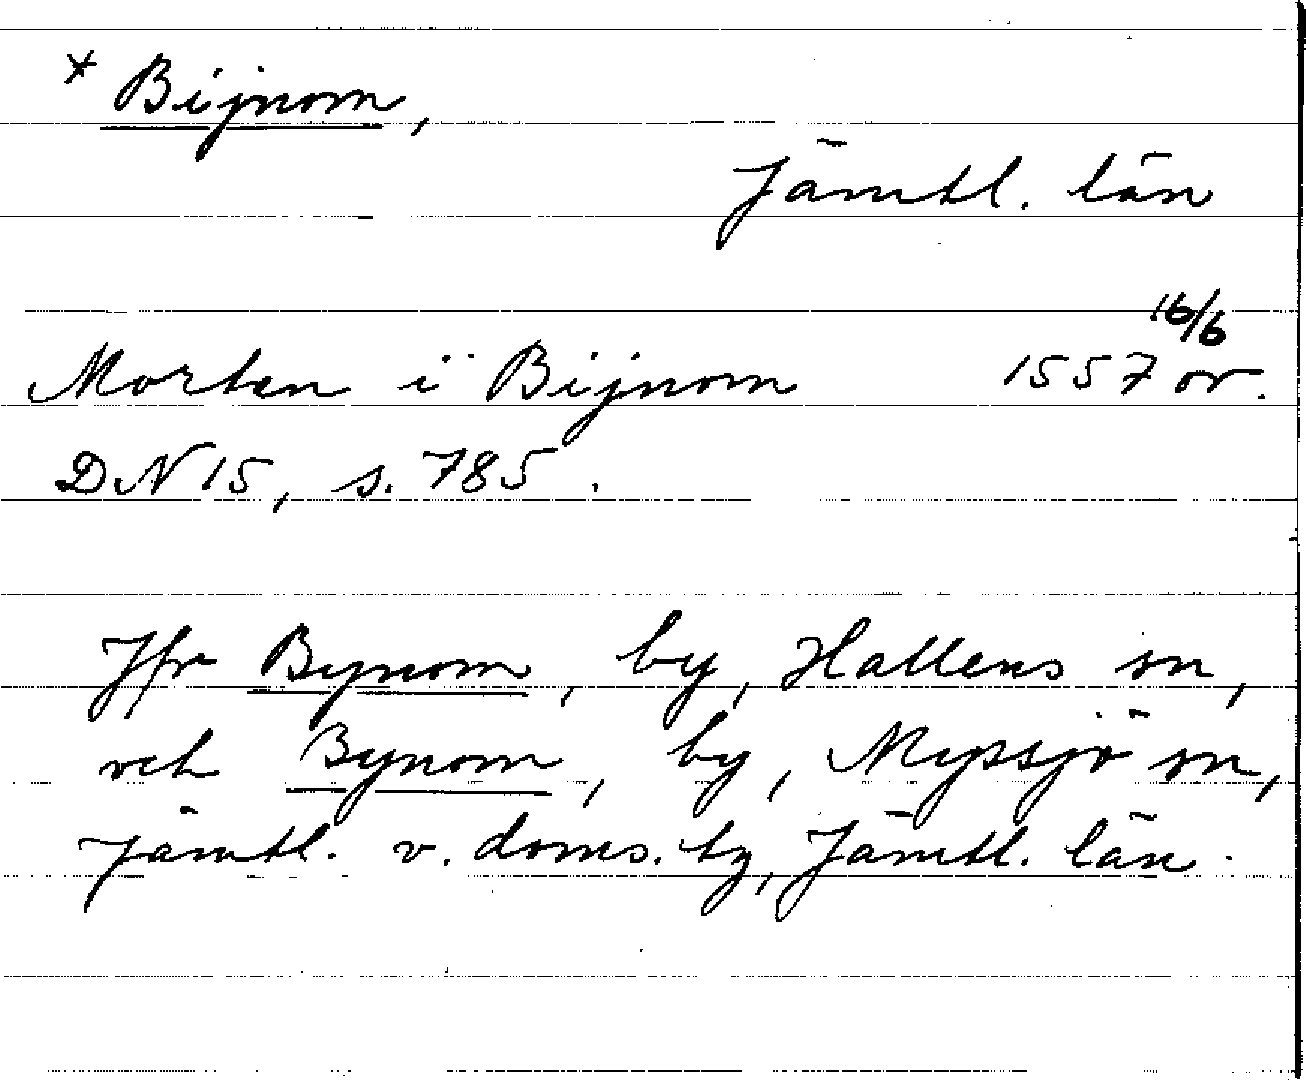 * Bijnom,
Jämtl. län
16/6
Morten i Bijnom 1557 or.
DN 15, s. 785.
Jfr Bynom, by, Hallens sn,
och Bynom, by, Myssjö sn,
Jämtl. v. doms. tg, Jämtl. län.